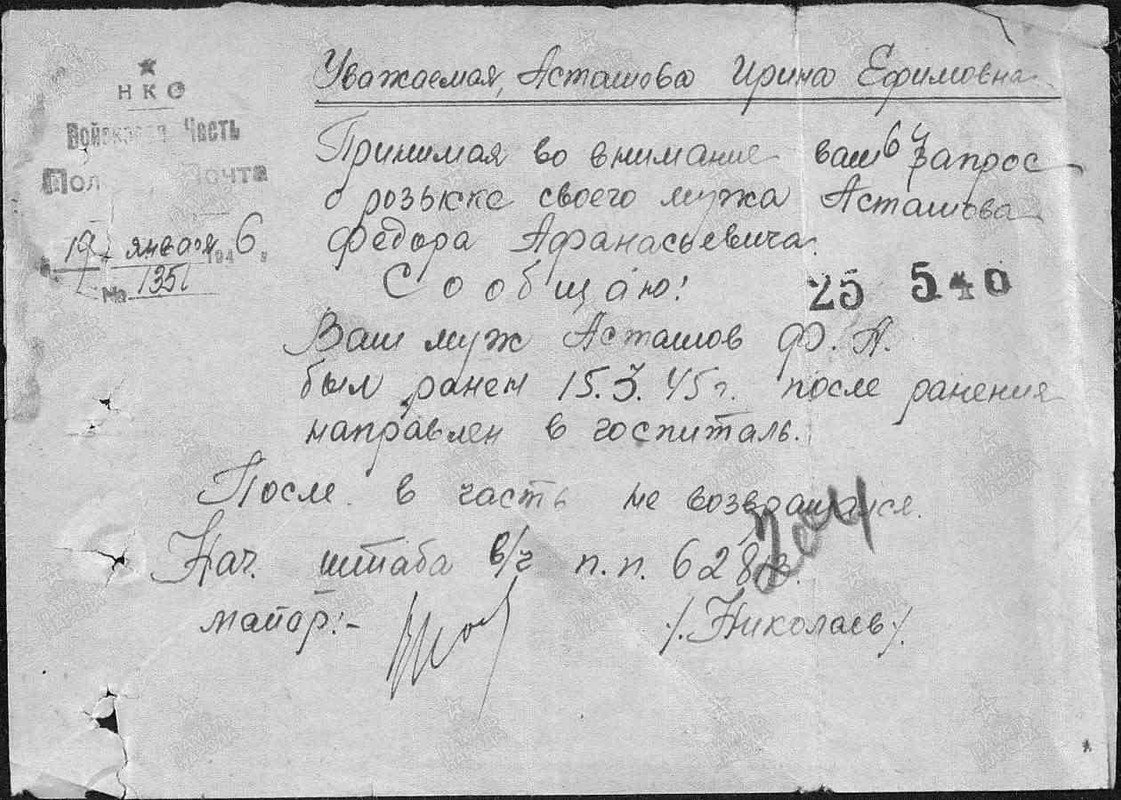 НКО
Войсковая Часть
Пол Почта
19 января 1946г.
№ 1351
Уважаемая, Асташова Ирина Ефимовна
Принимая во внимание ваш запрос
о розыске своего мужа Асташова
Федора Афанасьевича.
Сообщаю!
25 540
Ваш муж Асташов Ф. А.
был ранен 15.3.45г. после ранения
направлен в госпиталь.
После в часть не возвращался.
Нач. штаба в/ч п.п.
майор:- /.Николаев/.
ПАМЯТЬ НАРОДА